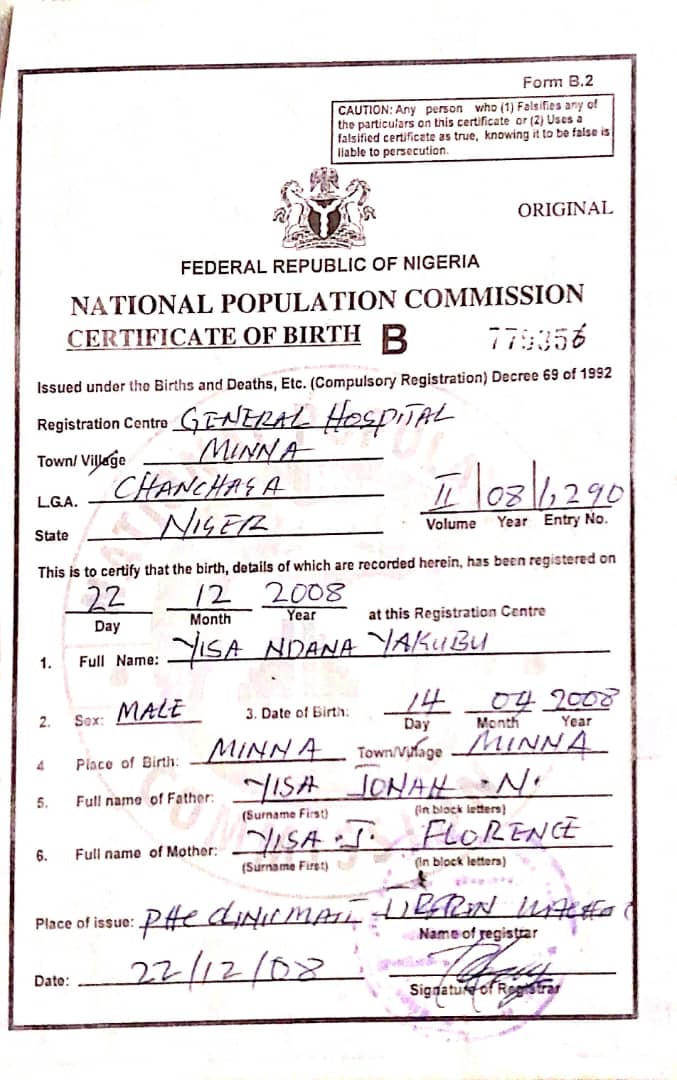 Form B.2
CAUTION: Any person who (1) Falsifies any of
the particulars on this certificate or (2) Uses a
falsified certificate as true, knowing it to be false is
liable to persecution.
ORIGINAL
FEDERAL REPUBLIC OF NIGERIA
NATIONAL POPULATION COMMISSION
CERTIFICATE OF BIRTH B 779356
Issued under the Births and Deaths, Etc. (Compulsory Registration) Decree 69 of 1992
Registration Centre GENERAL HOSPITAL
Town/ Village MINNA
L.G.A. CHANCHAGA
II 08 1,290
Volume Year Entry No.
State NIGER
This is to certify that the birth, details of which are recorded herein, has been registered on
22 12 2008
Day Month Year at this Registration Centre
1. Full Name: YISA NDANA YAKUBU
2. Sex: MALE 3. Date of Birth: 14 04 2008
Day Month Year
4 Place of Birth: MINNA Town/Village MINNA
5. Full name of Father: YISA JONAH .N.
(Surname First) (In block letters)
6. Full name of Mother: YISA .J. FLORENCE
(Surname First) (In block letters)
Place of issue: PHC CLINIC
Name of registrar
Date: 22/12/08
Signature of Registrar